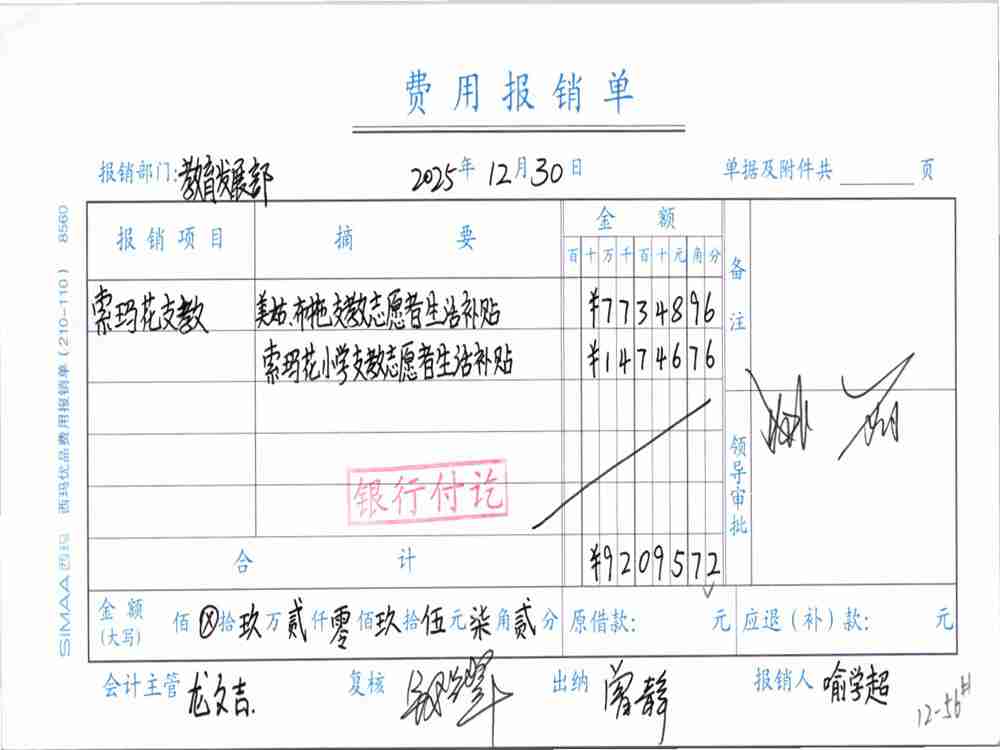 费用报销单
报销部门:教育发展部 2025年12月30日 单据及附件共 页
报销项目 摘要 金额 备注
百十万千百十元角分
索玛花支教 美姑、布拖支教志愿者生活补贴 ¥7734896
索玛花小学支教志愿者生活补贴 ¥1474676
银行付讫
领导审批
合计 ¥9209572
金额(大写) 佰ⓧ拾玖万贰仟零佰玖拾伍元柒角贰分 原借款: 元 应退(补)款: 元
会计主管 龙文吉 复核 出纳 曾静 报销人 喻学超
12-56#
SIMAA西玛 西玛优品费用报销单(210-110) 8560